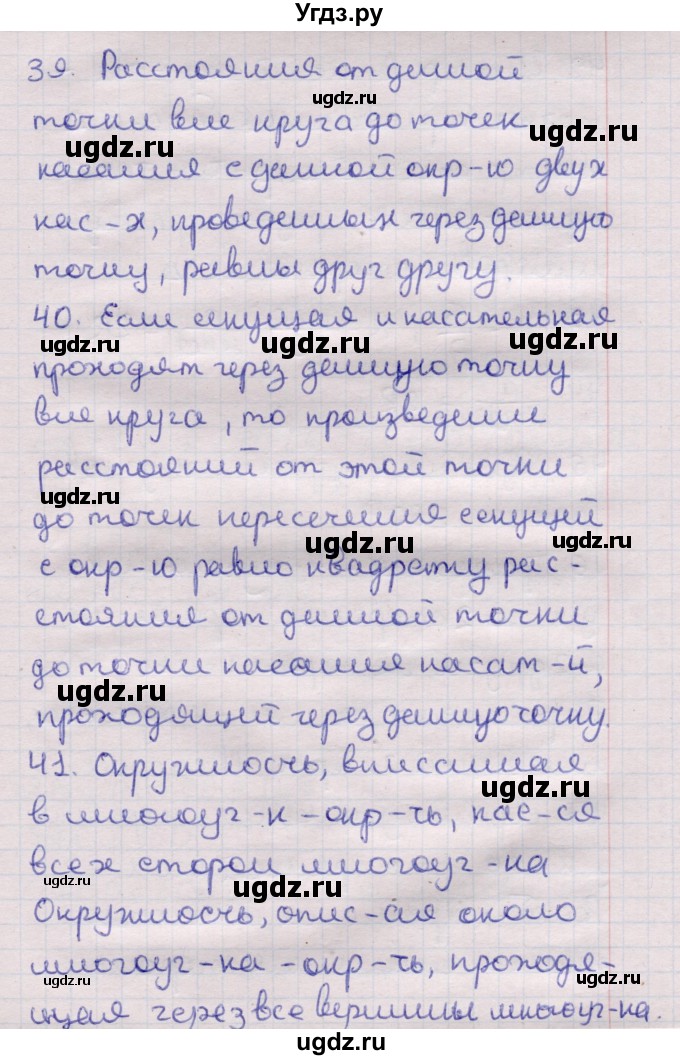 Угдз.ру
39. Расстояния от данной
ugdz.ru
точки вне круга до точек
ugdz.ru ugdz.ru
касания с данной окр-ю двух
ugdz.ru
кас-х, проведенных через данную
ugdz.ru ugdz.ru
точку, равны друг другу.
40. Если секущая и касательная
ugdz.ru ugdz.ru ugdz.ru
проходят через данную точку
вне круга, то произведение
ugdz.ru
расстояний от этой точки
ugdz.ru
до точек пересечения секущей
ugdz.ru ugdz.ru
с окр-ю равно квадрату рас-
стояния от данной точки
ugdz.ru
до точки касания касат-й,
ugdz.ru
проходящей через данную точку.
ugdz.ru
41. Окружность, вписанная
ugdz.ru
в многоуг-к - окр-ть, кас-ся
ugdz.ru
всех сторон многоуг-ка
ugdz.ru ugdz.ru
Окружность, опис-ая около
ugdz.ru
многоуг-ка - окр-ть, проходя-
ugdz.ru ugdz.ru
щая через все вершины многоуг-ка.
ugdz.ru